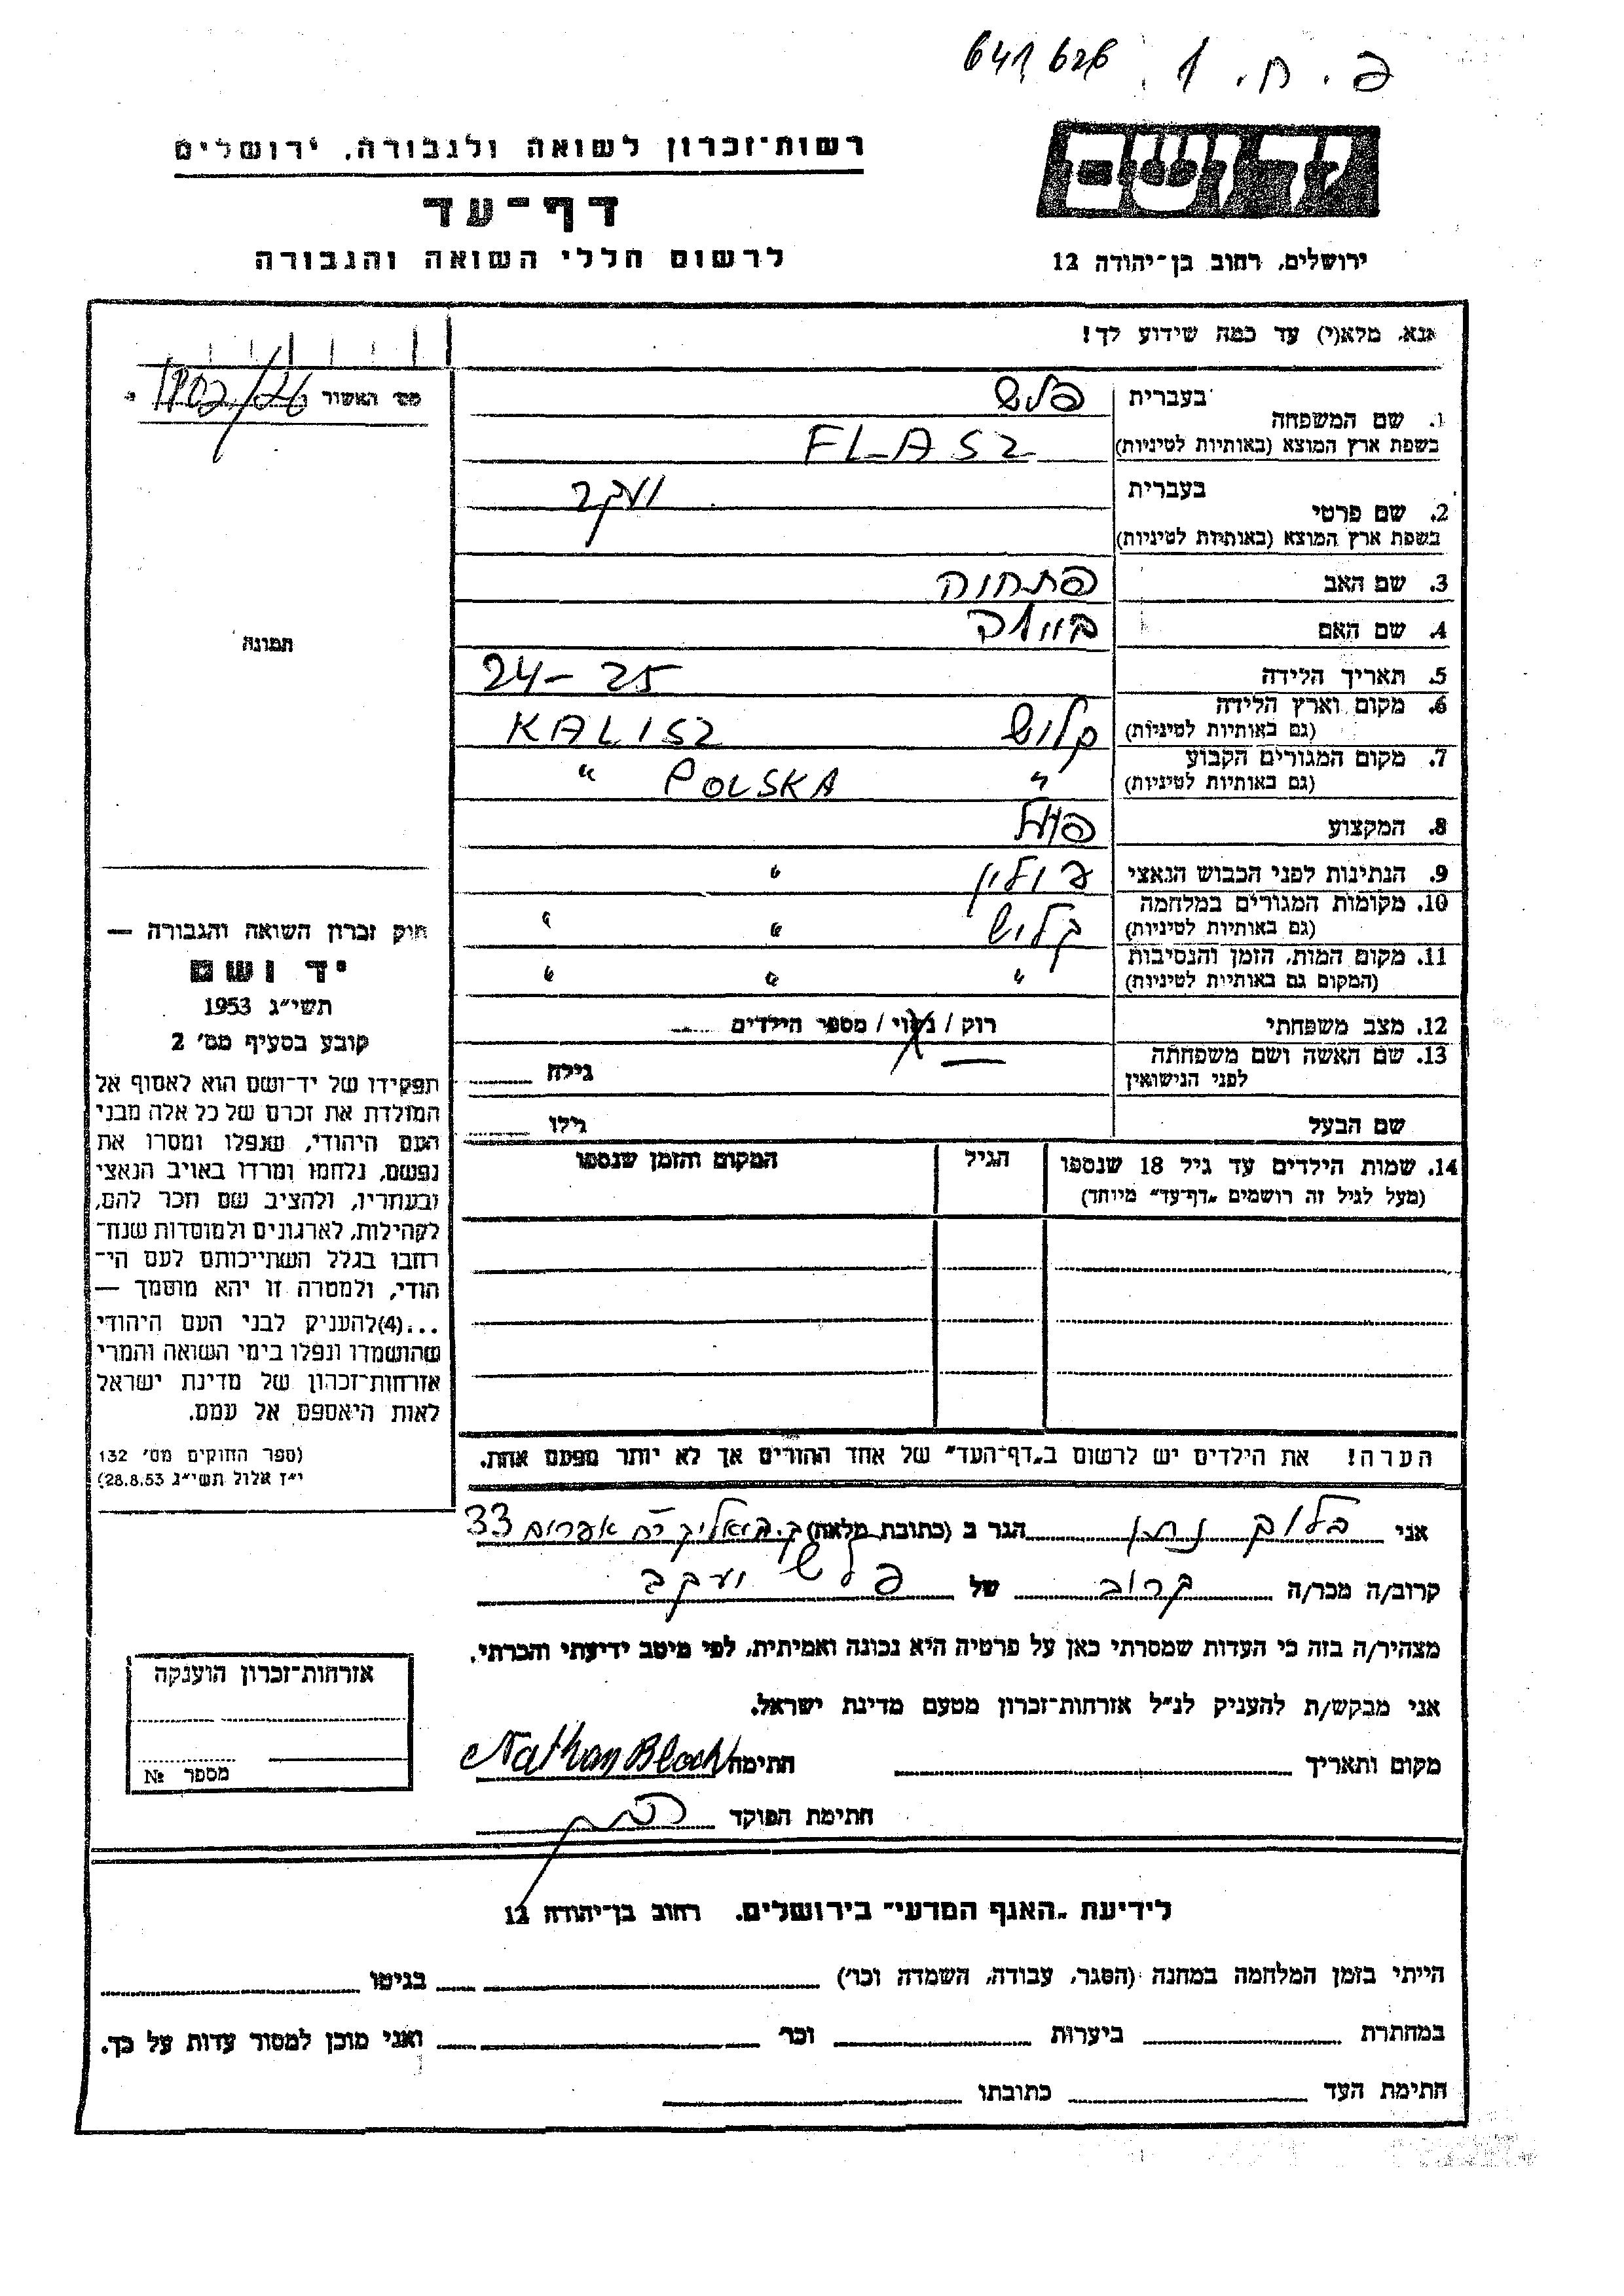 פ. ח. 1. 641626
ידושם
רשות־זכרון לשואה ולגבורה, ירושלים
דף־עד
ירושלים, רחוב בן־יהודה 12
לרשום חללי השואה והגבורה
אנא, מלא(י) עד כמה שידוע לך!
מס׳ האשור
1. שם המשפחה
בעברית פלש
בשפת ארץ המוצא (באותיות לטיניות) FLASZ
2. שם פרטי
בעברית יעקב
בשפת ארץ המוצא (באותיות לטיניות)
3. שם האב פתחיה
4. שם האם
5. תאריך הלידה 24-25
6. מקום וארץ הלידה (גם באותיות לטיניות) קליש KALISZ
7. מקום המגורים הקבוע (גם באותיות לטיניות) " POLSKA "
8. המקצוע פועל
9. הנתינות לפני הכבוש הנאצי פולין "
10. מקומות המגורים במלחמה (גם באותיות לטיניות) קליש " "
11. מקום המות, הזמן והנסיבות (המקום גם באותיות לטיניות) " " "
12. מצב משפחתי רוק / נשוי / מספר הילדים
13. שם האשה ושם משפחתה לפני הנישואין — גילה
שם הבעל גילו
14. שמות הילדים עד גיל 18 שנספו
(מעל לגיל זה רושמים „דף־עד״ מיוחד)
הגיל
המקום והזמן שנספו
הערה! את הילדים יש לרשום ב„דף־העד״ של אחד ההורים אך לא יותר מפעם אחת.
תמונה
חוק זכרון השואה והגבורה —
יד ושם
תשי״ג 1953
קובע בסעיף מס׳ 2
תפקידו של יד־ושם הוא לאסוף אל
המולדת את זכרם של כל אלה מבני
העם היהודי, שנפלו ומסרו את
נפשם, נלחמו ומרדו באויב הנאצי
ובעוזריו, ולהציב שם וזכר להם,
לקהילות, לארגונים ולמוסדות שנח־
רבו בגלל השתייכותם לעם הי־
הודי, ולמטרה זו יהא מוסמך —
...(4) להעניק לבני העם היהודי
שהושמדו ונפלו בימי השואה והמרי
אזרחות־זכרון של מדינת ישראל
לאות היאספם אל עמם.
(ספר החוקים מס׳ 132
י״ז אלול תשי״ג 28.8.53)
אני בלוך נתן הגר ב (כתובת מלאה) ק. ביאליק אפרים 33
קרוב/ה מכר/ה קרוב של פלש יעקב
מצהיר/ה בזה כי העדות שמסרתי כאן על פרטיה היא נכונה ואמיתית, לפי מיטב ידיעתי והכרתי.
אני מבקש/ת להעניק לנ״ל אזרחות־זכרון מטעם מדינת ישראל.
מקום ותאריך חתימה Nathan Bloch
חתימת הפוקד
אזרחות־זכרון הוענקה
מספר №
לידיעת „האגף המדעי״ בירושלים. רחוב בן־יהודה 12
הייתי בזמן המלחמה במחנה (הסגר, עבודה, השמדה וכו׳) בגיטו
במחתרת ביערות וכו׳ ואני מוכן למסור עדות על כך.
חתימת העד כתובתו